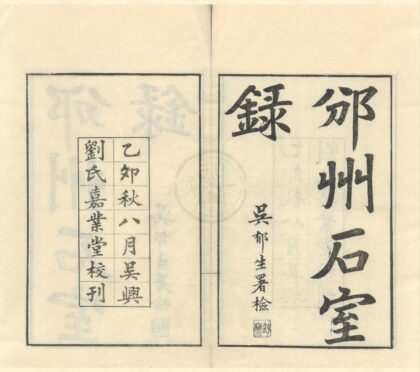 邠州石室
録
吳郁生署檢
乙卯秋八月吳興
劉氏嘉業堂校刊